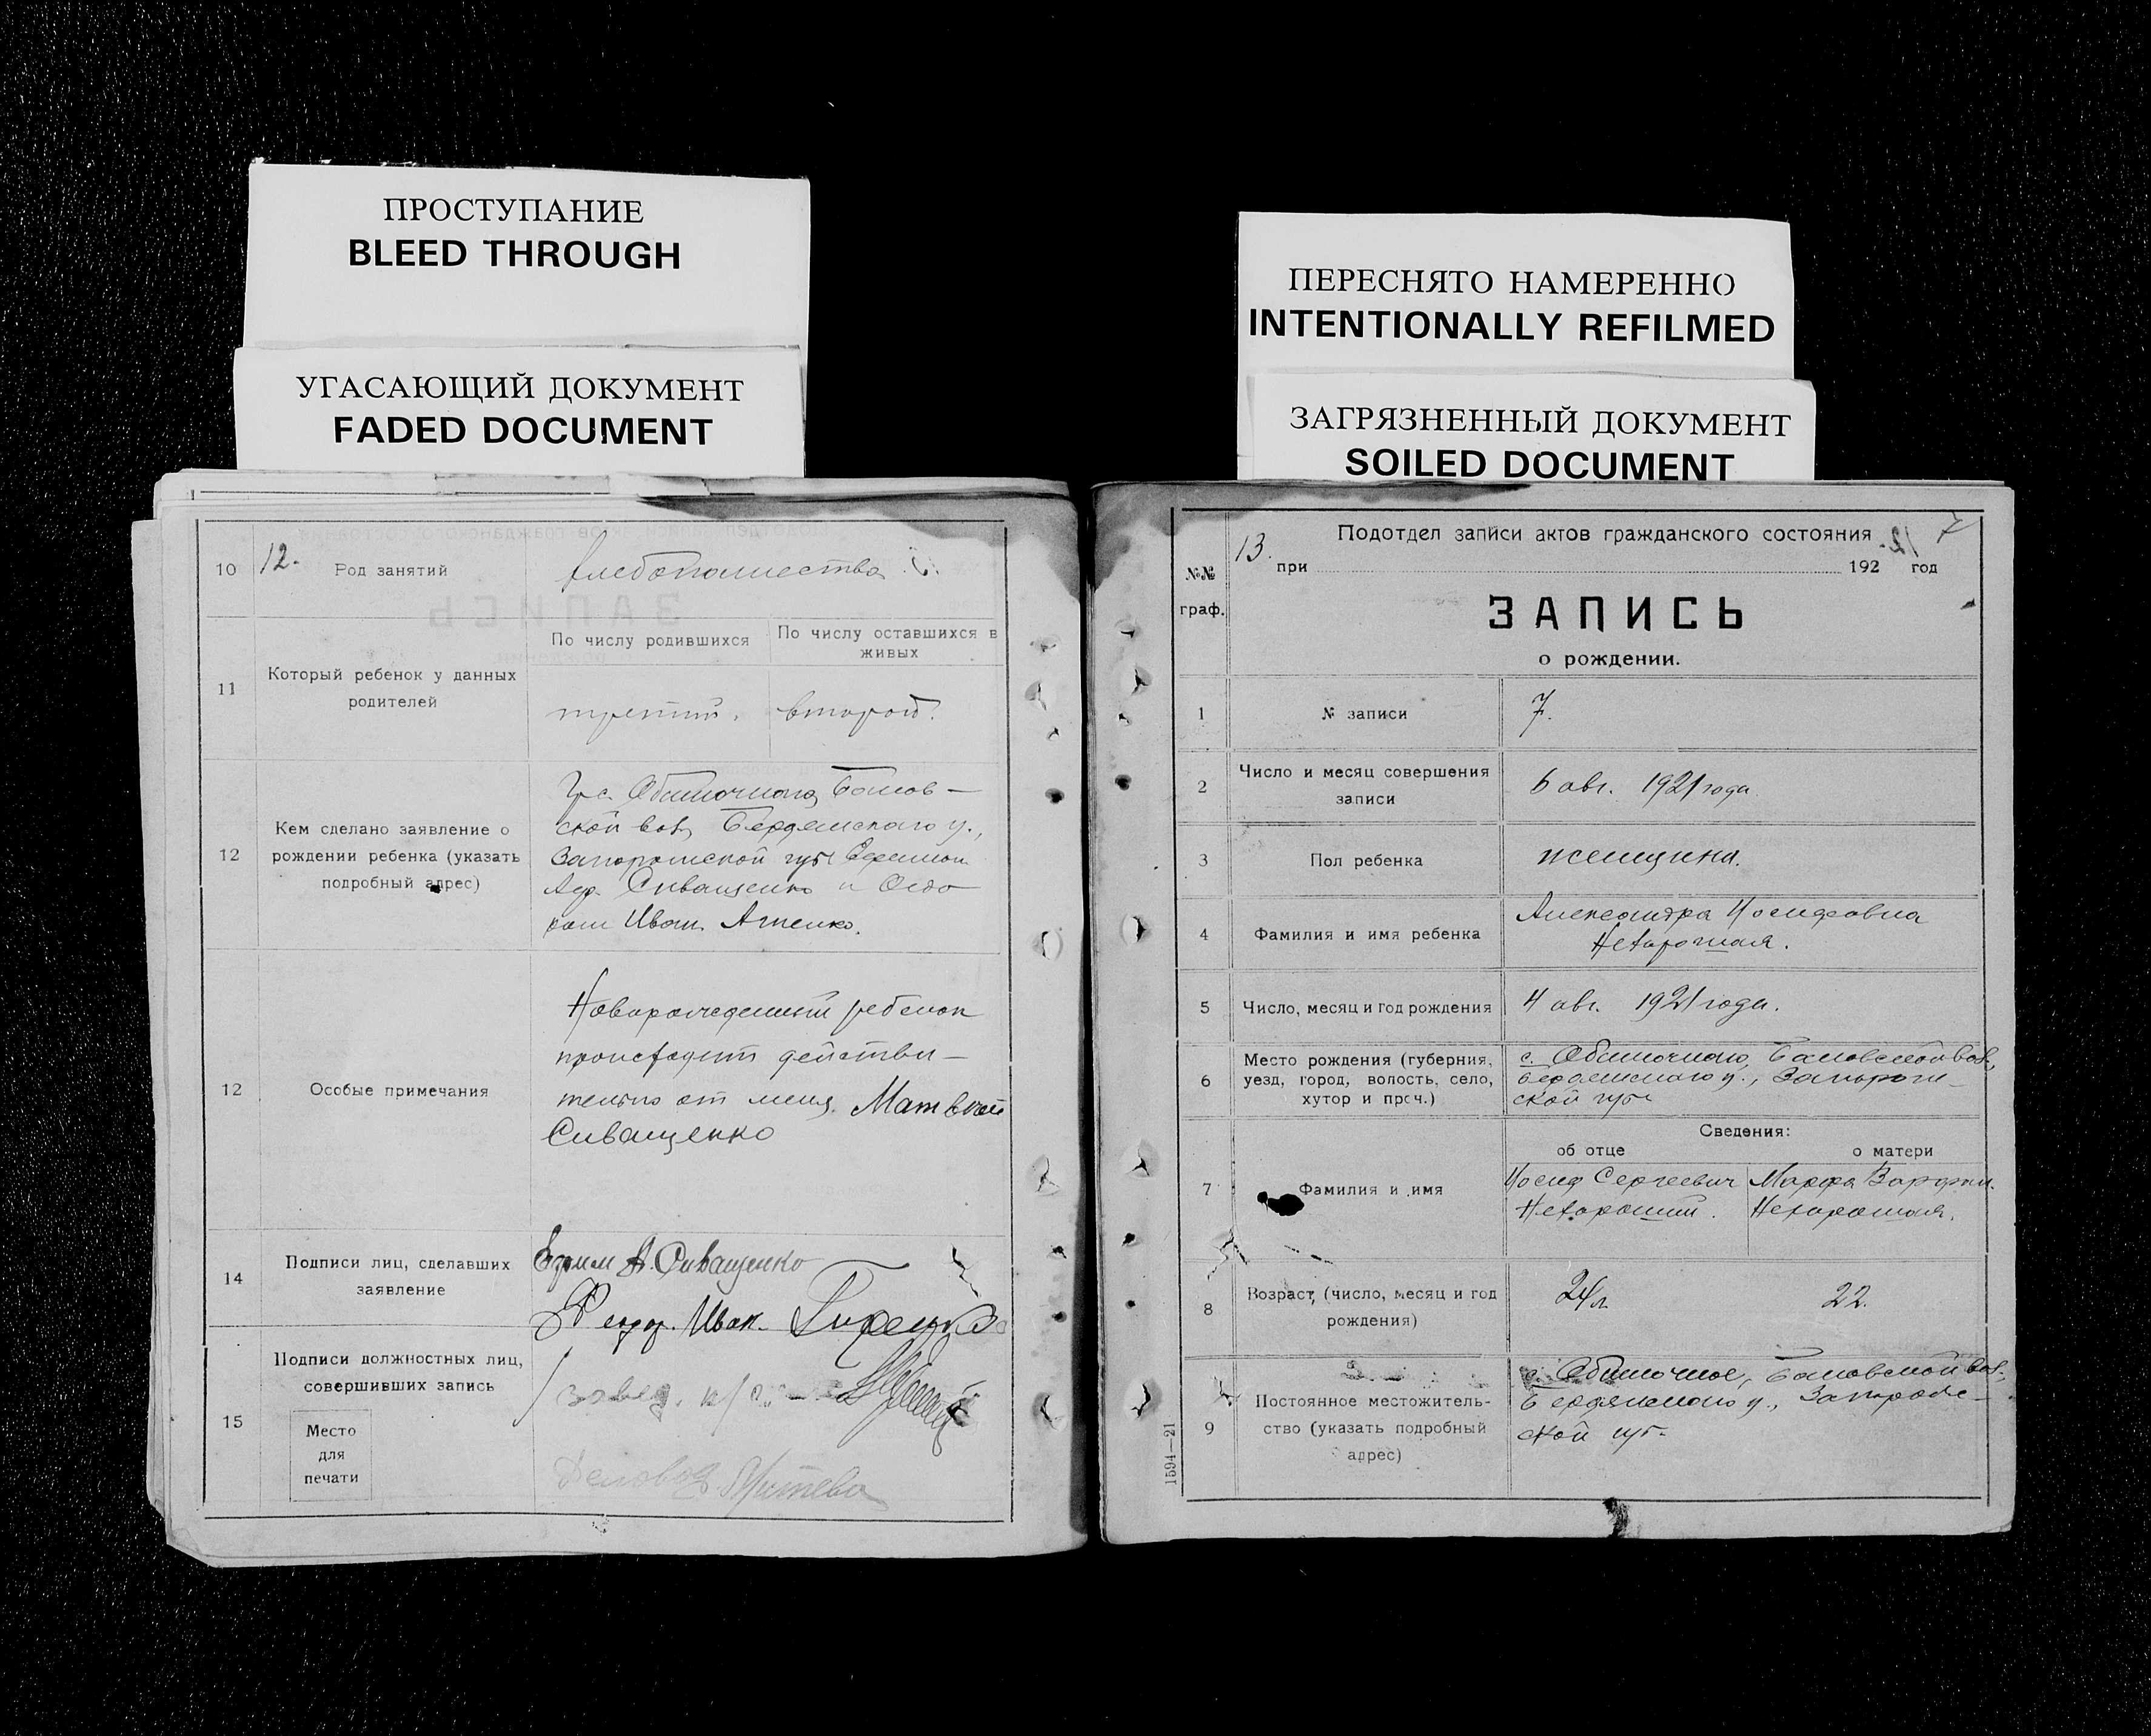 ПРОСТУПАНИЕ
BLEED THROUGH
УГАСАЮЩИЙ ДОКУМЕНТ
FADED DOCUMENT
ПЕРЕСНЯТО НАМЕРЕННО
INTENTIONALLY REFILMED
ЗАГРЯЗНЕННЫЙ ДОКУМЕНТ
SOILED DOCUMENT
12.
10 Род занятий
хлебопашество
11 Который ребенок у данных
родителей
По числу родившихся
По числу оставшихся в
живых
третий. второй.
12 Кем сделано заявление о
рождении ребенка (указать
подробный адрес)
Гр с. Обиточного,
ской вол, Бердянского у.,
Запорожской губ
Сиващенко и
Иван.
12 Особые примечания
Новорожеденный ребенок
происходит действи-
тельно от меня. Матвей
Сиващенко
14 Подписи лиц, сделавших
заявление
Ефим А. Сиващенко
Федор. Иван.
15 Подписи должностных лиц,
совершивших запись
Место
для
печати
завед. п/о
13.
7
№№
граф.
Подотдел записи актов гражданского состояния
при 192 год
ЗАПИСЬ
о рождении.
1 № записи
7.
2 Число и месяц совершения
записи
6 авг. 1921 года
3 Пол ребенка
женщина.
4 Фамилия и имя ребенка
Александра Иосифовна
Нехорошая.
5 Число, месяц и год рождения
4 авг. 1921 года.
6 Место рождения (губерния,
уезд, город, волость, село,
хутор и проч.)
с. Обиточного,
Бердянского у., Запорож-
ской губ
Сведения:
об отце о матери
7 Фамилия и имя
Иосиф Сергеевич
Нехороший.
Марфа
Нехорошая.
8 Возраст (число, месяц и год
рождения)
24 л. 22.
9 Постоянное местожитель-
ство (указать подробный
адрес)
с. Обиточное,
Бердянского у.,
ской губ.
1594—21